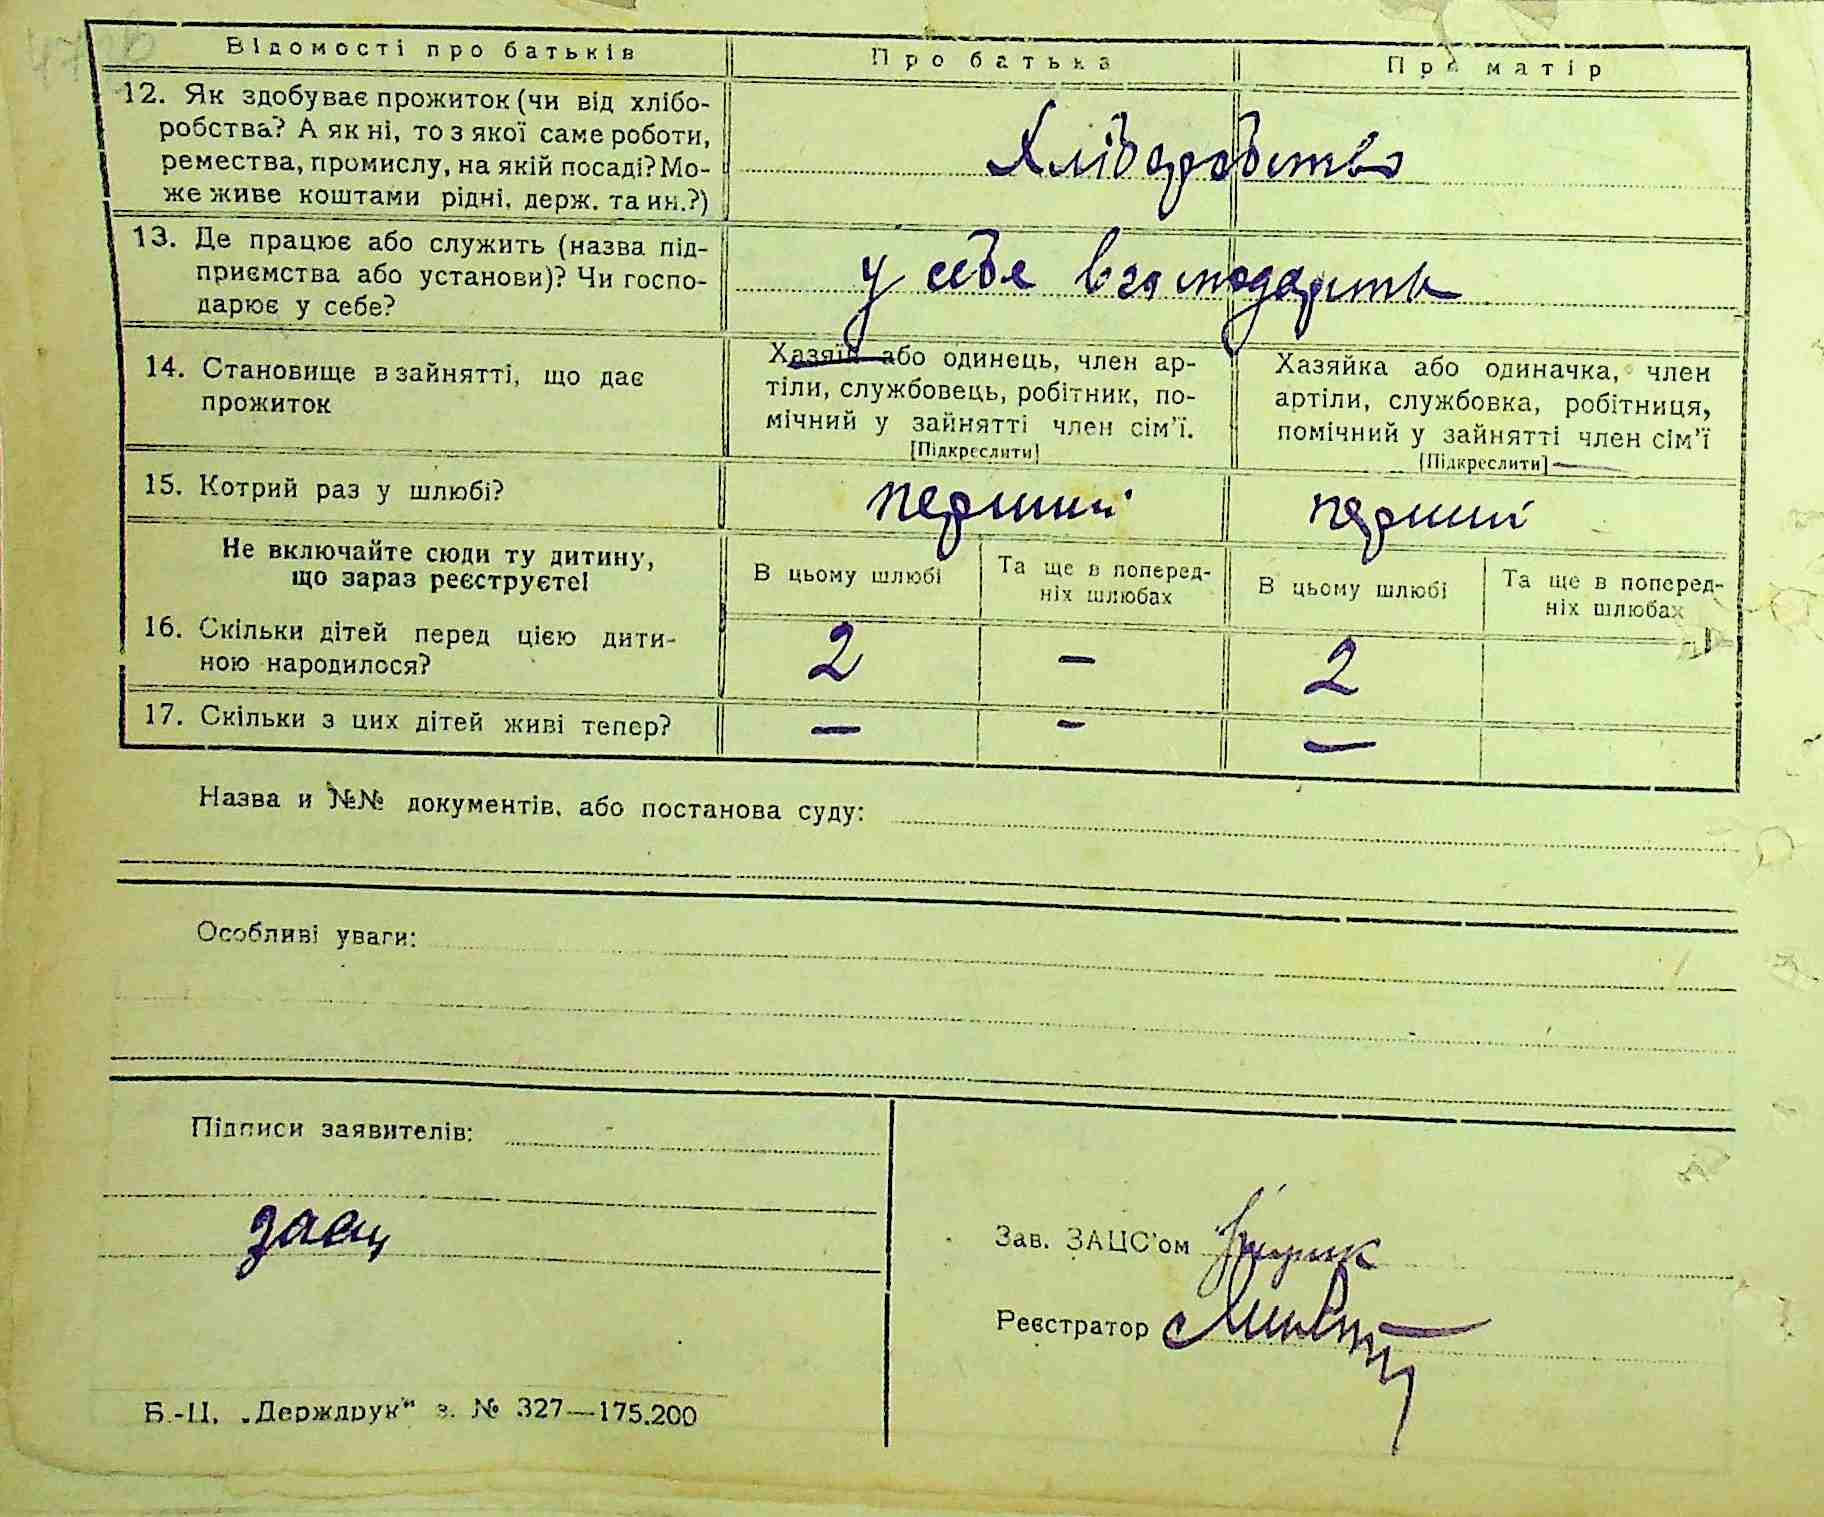 Відомості про батьків
Про батька
Про матір
12. Як здобуває прожиток (чи від хлібо-
робства? А як ні, то з якої саме роботи,
ремества, промислу, на якій посаді? Мо-
же живе коштами рідні, держ. та ин.?)
Хліборобство
13. Де працює або служить (назва під-
приємства або установи)? Чи госпо-
дарює у себе?
у себе в господарстві
14. Становище в зайнятті, що дає
прожиток
Хазяїн або одинець, член ар-
тіли, службовець, робітник, по-
мічний у зайнятті член сім'ї.
[Підкреслити]
Хазяйка або одиначка, член
артіли, службовка, робітниця,
помічний у зайнятті член сім'ї
[Підкреслити]
15. Котрий раз у шлюбі?
перший
перший
Не включайте сюди ту дитину,
що зараз реєструєте!
В цьому шлюбі
Та ще в поперед-
ніх шлюбах
В цьому шлюбі
Та ще в поперед-
ніх шлюбах
16. Скільки дітей перед цією дити-
ною народилося?
2
–
2
17. Скільки з цих дітей живі тепер?
–
–
–
Назва и №№ документів, або постанова суду:
Особливі уваги:
Підписи заявителів:
Заяц
Зав. ЗАЦС'ом
Реєстратор
Б.-Ц. „Держдрук" з. № 327—175.200